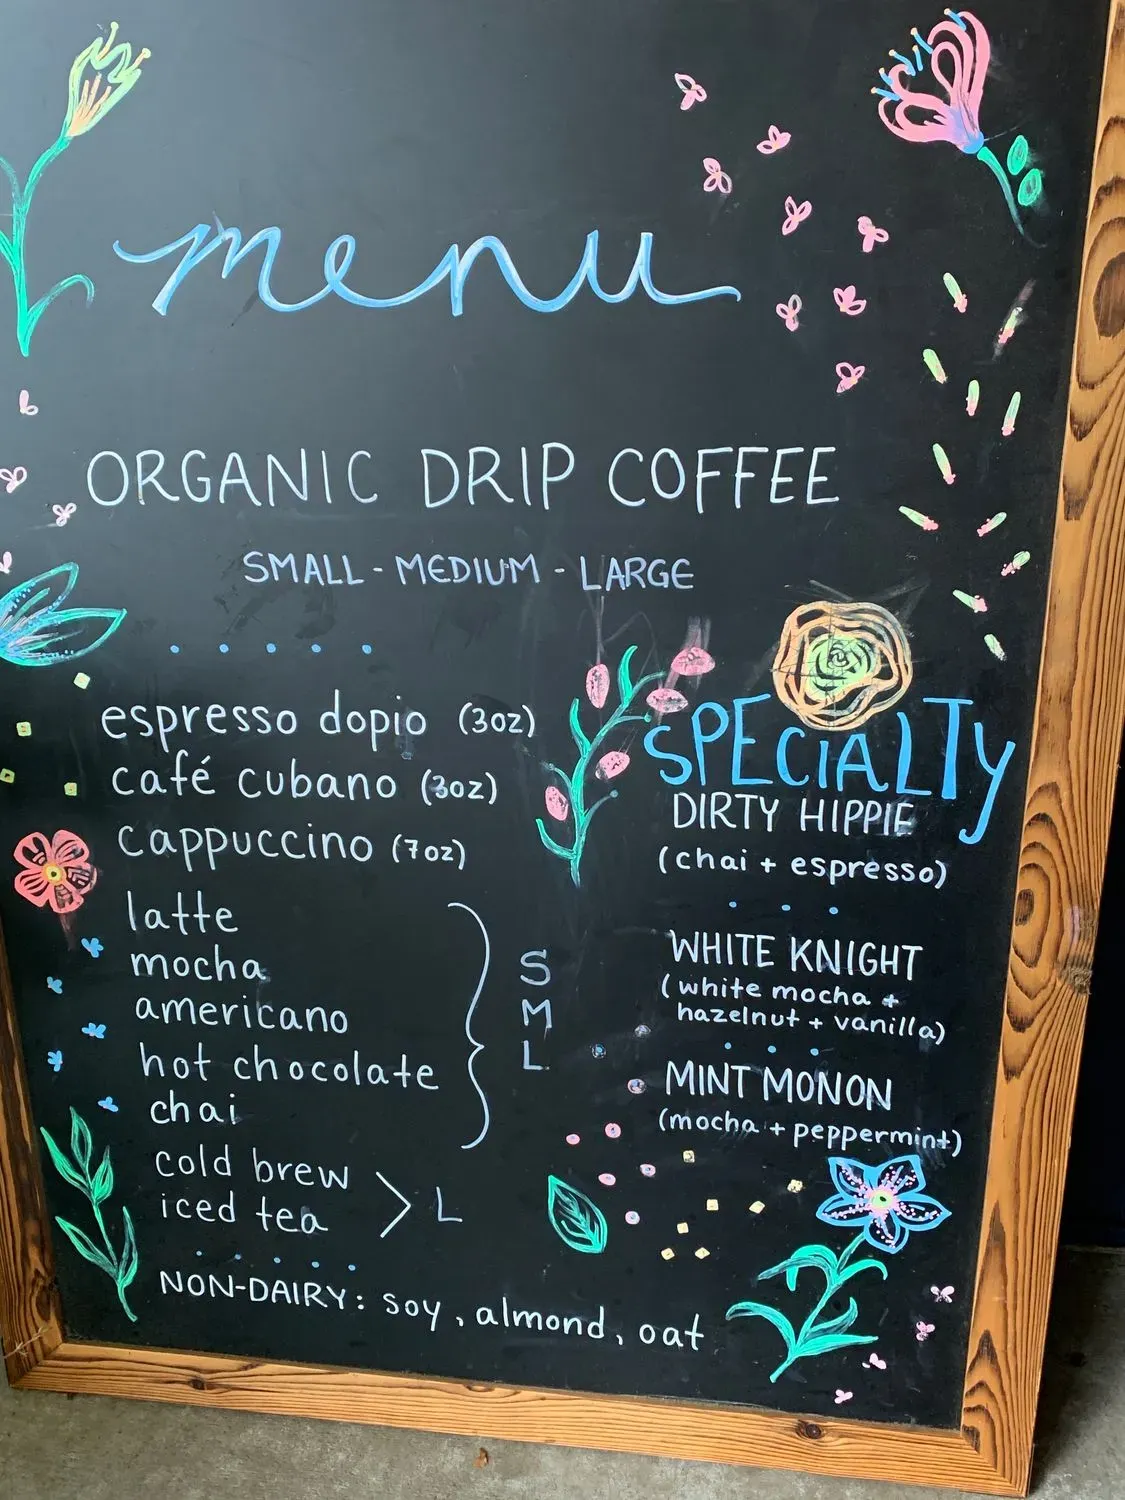 menu
ORGANIC DRIP COFFEE
SMALL - MEDIUM - LARGE
espresso dopio (3oz)
café cubano (3oz)
cappuccino (7oz)
latte
mocha
americano
hot chocolate
chai
S
M
L
cold brew
iced tea
> L
NON-DAIRY: soy, almond, oat
SPECIALTY
DIRTY HIPPIE
(chai + espresso)
WHITE KNIGHT
(white mocha +
hazelnut + vanilla)
MINT MONON
(mocha + peppermint)